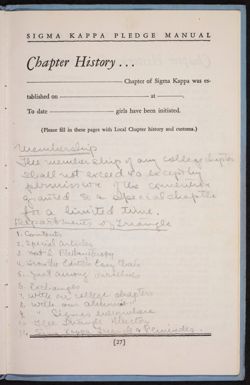 SIGMA KAPPA PLEDGE MANUAL
Chapter History...
Chapter of Sigma Kappa was es-
tablished on at .
To date girls have been initiated.
(Please fill in these pages with Local Chapter history and customs.)
Membership
The membership of any college chapter
shall not exceed except by
permission of the convention
granted to a special chapter
for a limited time.
Departments of Triangle
1. Contents
2. Special articles
3. Nat'l Philanthropy
4.
5. Just among ourselves
6. Exchanges
7. With our college chapters
8. With our alumnae
9. " Sigmas everywhere
10. Directory
11. Sigma Kappa
[27]